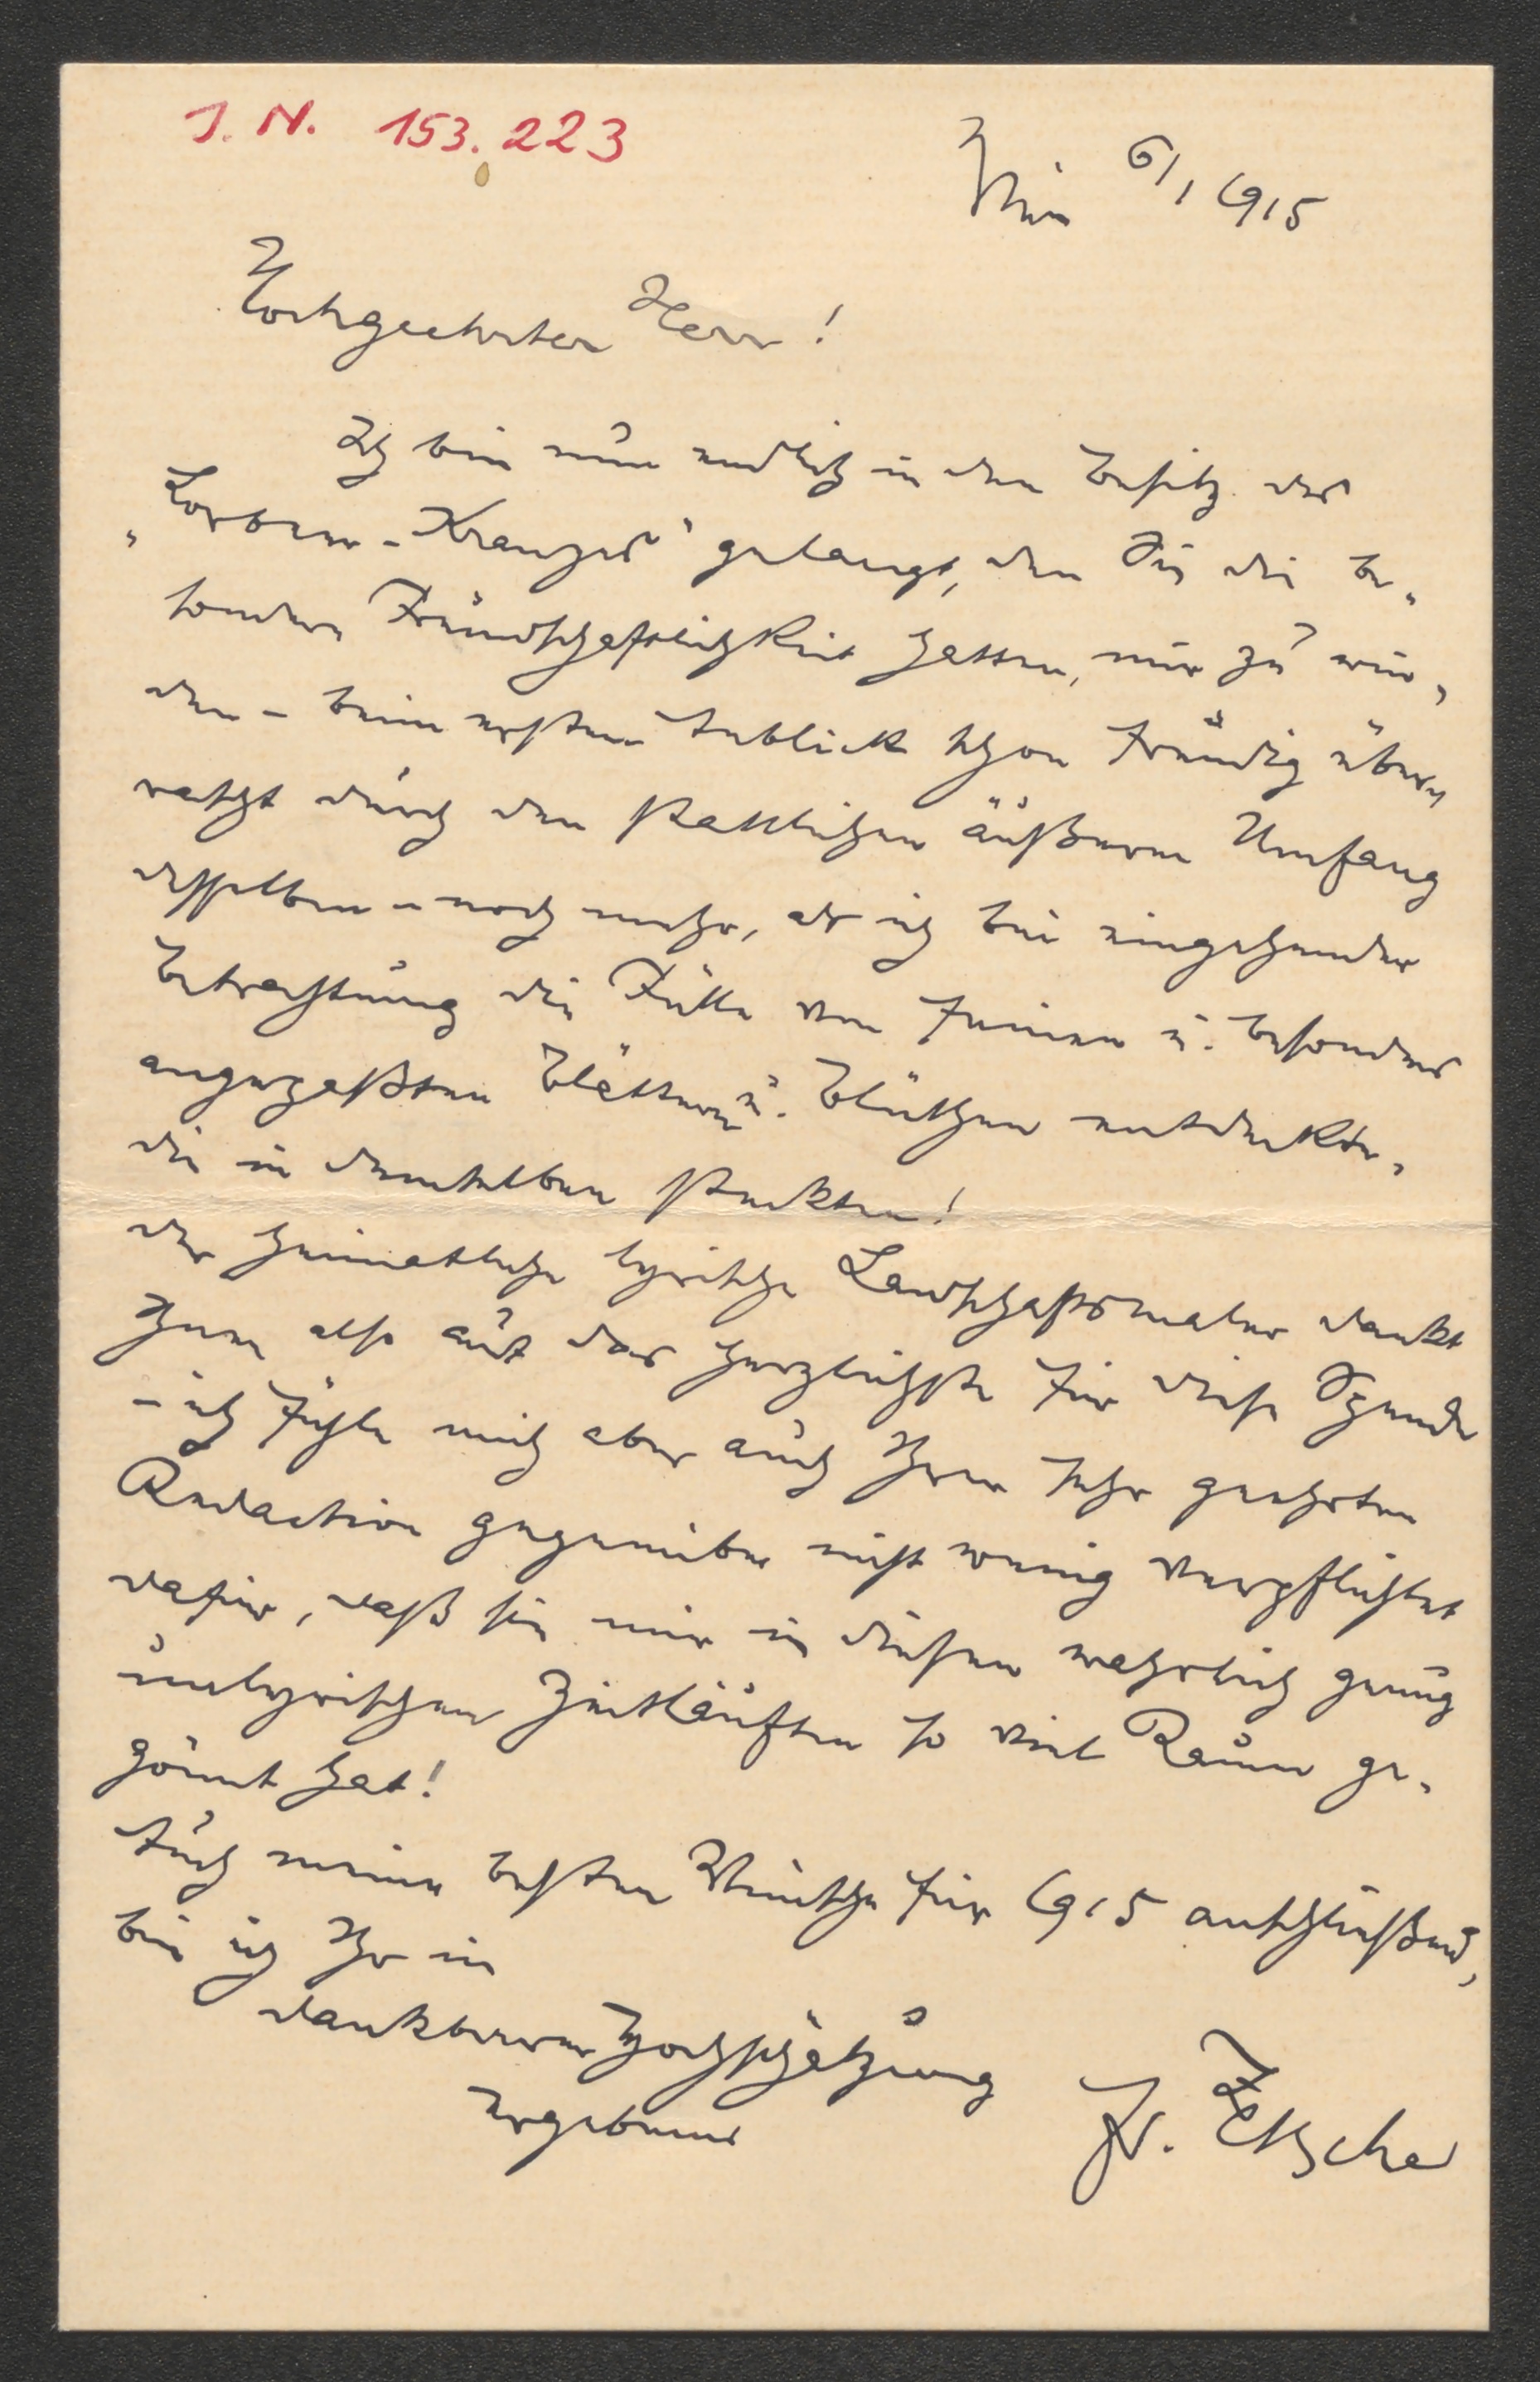 J. N. 153.223
Wien 6/1 1915
Hochgeehrter Herr!
Ich bin nun endlich in den Besitz des
„Lorbeer-Kranzes" gelangt, den Sie die be-
sondere Freundschaftlichkeit hatten, mir zu win-
den - beim ersten Anblick schon freudig über-
rascht durch den stattlichen äußeren Umfang
desselben - noch mehr, als ich bei eingehender
Betrachtung die Fülle von feinen u. besonders
angepaßten Blättern u. Blüthen entdeckte,
die in demselben steckten!
Der heimatliche lyrische Landschaftsmaler dankt
Ihnen also auf das herzlichste für diese Spende
- ich fühle mich aber auch Ihrer sehr geehrten
Redaction gegenüber nicht wenig verpflichtet
dafür, daß sie mir in diesen wahrlich genug
unlyrischen Zeitläuften so viel Raum ge-
gönnt hat!
Auch meine besten Wünsche für 1915 anschließend,
bin ich Ihr in
dankbarer Hochschätzung
Ergebener
E. Zetsche